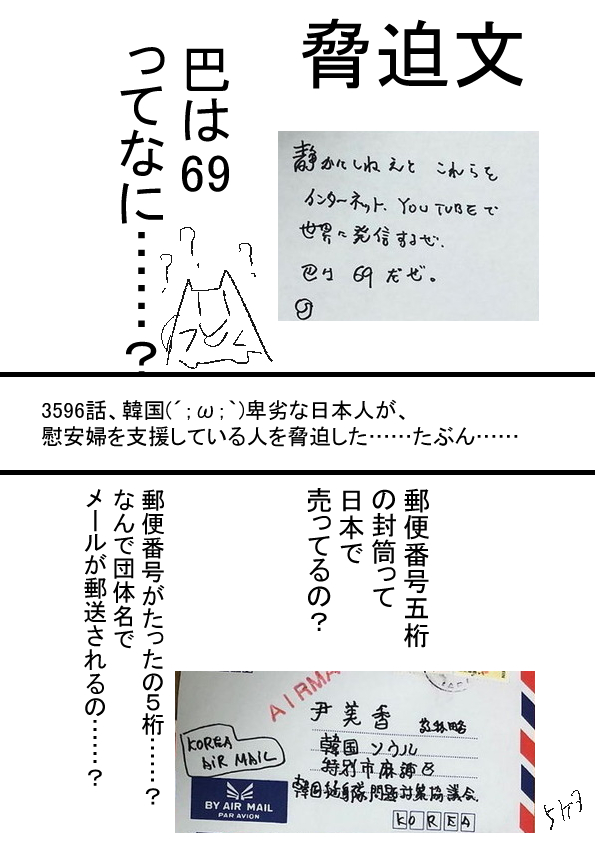 脅迫文
巴は69
ってなに……‥？
静かにしねえと これらを
インターネット、YOUTUBEで
世界に発信するぜ.
巴は 69 だぜ。
3596話、韓国(´;ω;`)卑劣な日本人が、
慰安婦を支援している人を脅迫した……たぶん……
郵便番号五桁
の封筒って
日本で
売ってるの？
郵便番号がたったの５桁……？
なんで団体名で
メールが郵送されるの……？
AIRMA
尹美香
韓国ソウル
特別市麻浦区
韓国挺身隊問題対策協議会
KOREA
AIR MAIL
BY AIR MAIL
PAR AVION
KOREA